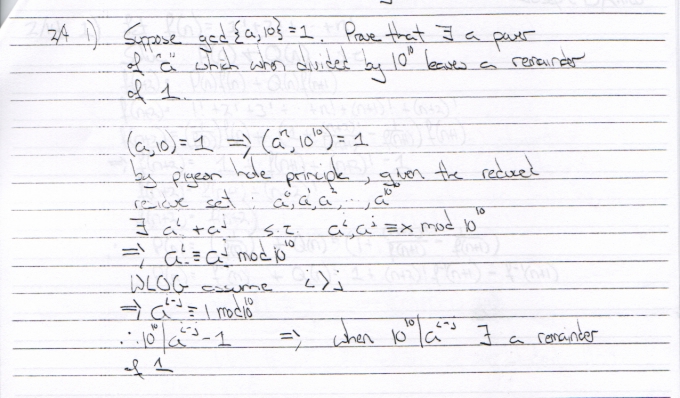 2/4 1) Suppose gcd{a,10}=1. Prove that ∃ a power
of "a" which when divided by 10¹⁰ leaves a remainder
of 1.
(a,10)=1 ⇒ (aⁿ,10¹⁰)=1
by pigeon hole principle, given the reduced
residue set: a⁰,a¹,a²,…,a^10^10
∃ aⁱ + aʲ s.t. aⁱ,aʲ ≡ x mod 10¹⁰
⇒ aⁱ ≡ aʲ mod 10¹⁰
WLOG assume i>j
⇒ aⁱ⁻ʲ ≡ 1 mod 10¹⁰
∴ 10¹⁰|aⁱ⁻ʲ-1 ⇒ when 10¹⁰|aⁱ⁻ʲ ∃ a remainder
of 1